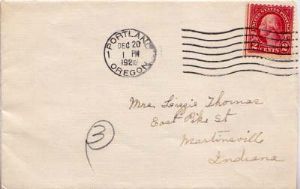 PORTLAND
DEC 20
1 PM
OREGON
2 CENTS 2
Mrs. Lizzie Thomas
East Pike St
Martinsville
Indiana
3